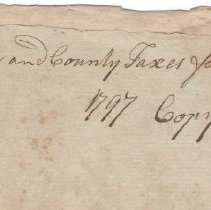 and County Taxes fo
1797 Copy